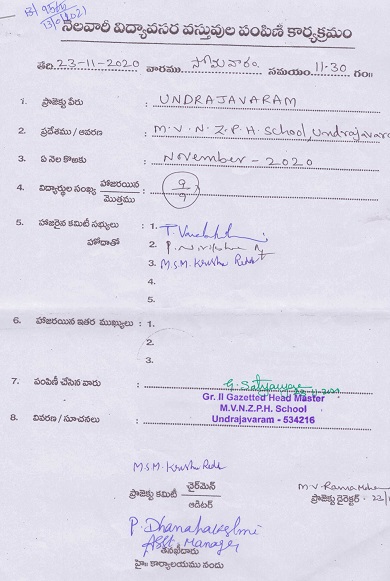 నెలవారీ విద్యావసర వస్తువుల పంపిణీ కార్యక్రమం
తేది: 23-11-2020 వారము సోమవారం సమయం: 11-30 గం॥
1. ప్రాజెక్టు పేరు : UNDRAJAVARAM
2. ప్రదేశము / ఆవరణ : M.V.N.Z.P.H School, Undrajavaram
3. ఏ నెల కొఱకు : November - 2020
4. విద్యార్థుల సంఖ్య హాజరయిన / మొత్తము : 9/9
5. హాజరైన కమిటీ సభ్యులు : 1.
హోదాతో 2.
3. M.S.M. Krishna Reddi
4.
5.
6. హాజరయిన ఇతర ముఖ్యులు : 1.
2.
3.
7. పంపిణీ చేసిన వారు : G. Satyanarayana
Gr. II Gazetted Head Master
M.V.N.Z.P.H. School
8. వివరణ / సూచనలు : Undrajavaram - 534216
M.S.M. Krishna Reddi
ప్రాజెక్టు కమిటీ ఛైర్‌మెన్ / ఆడిటర్
M.V. Rama
ప్రాజెక్టు డైరెక్టర్
P. Dhanalakshmi
Asst Manager
తనఖీదారు
హై॥ కార్యాలయము నందు